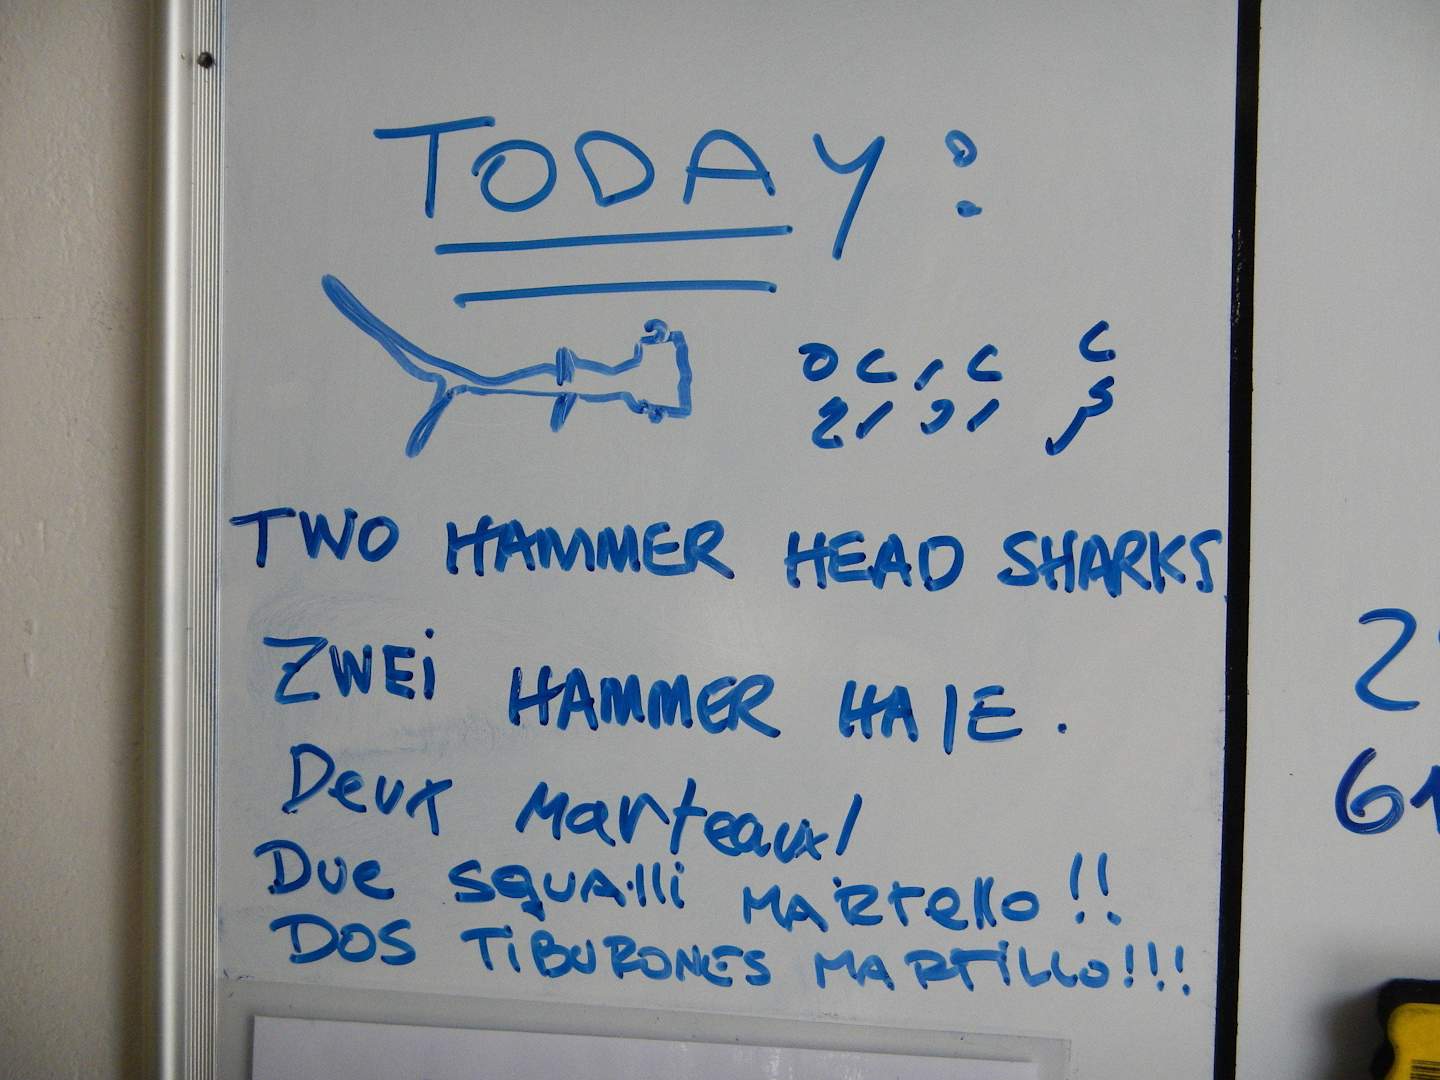 TODAY:
TWO HAMMER HEAD SHARKS
ZWEi HAMMER HAIE.
Deux Marteaux!
Due squalli MARtello!!
DOS TiBURONES MARTiLLO!!!
2
61